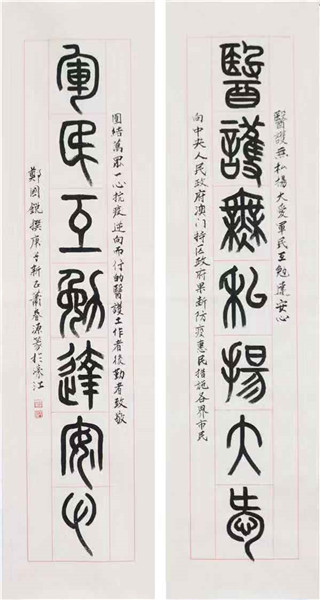 醫護無私揚大愛軍民互勉達安心
醫護無私揚大愛
向中央人民政府澳门特區政府果断防疫惠民措施各界市民
團結萬眾一心抗疫逆向而行的醫護工作者後勤者致敬
軍民互勉達安心
鄭國鋭撰庚子新正蕭春源篆於濠江